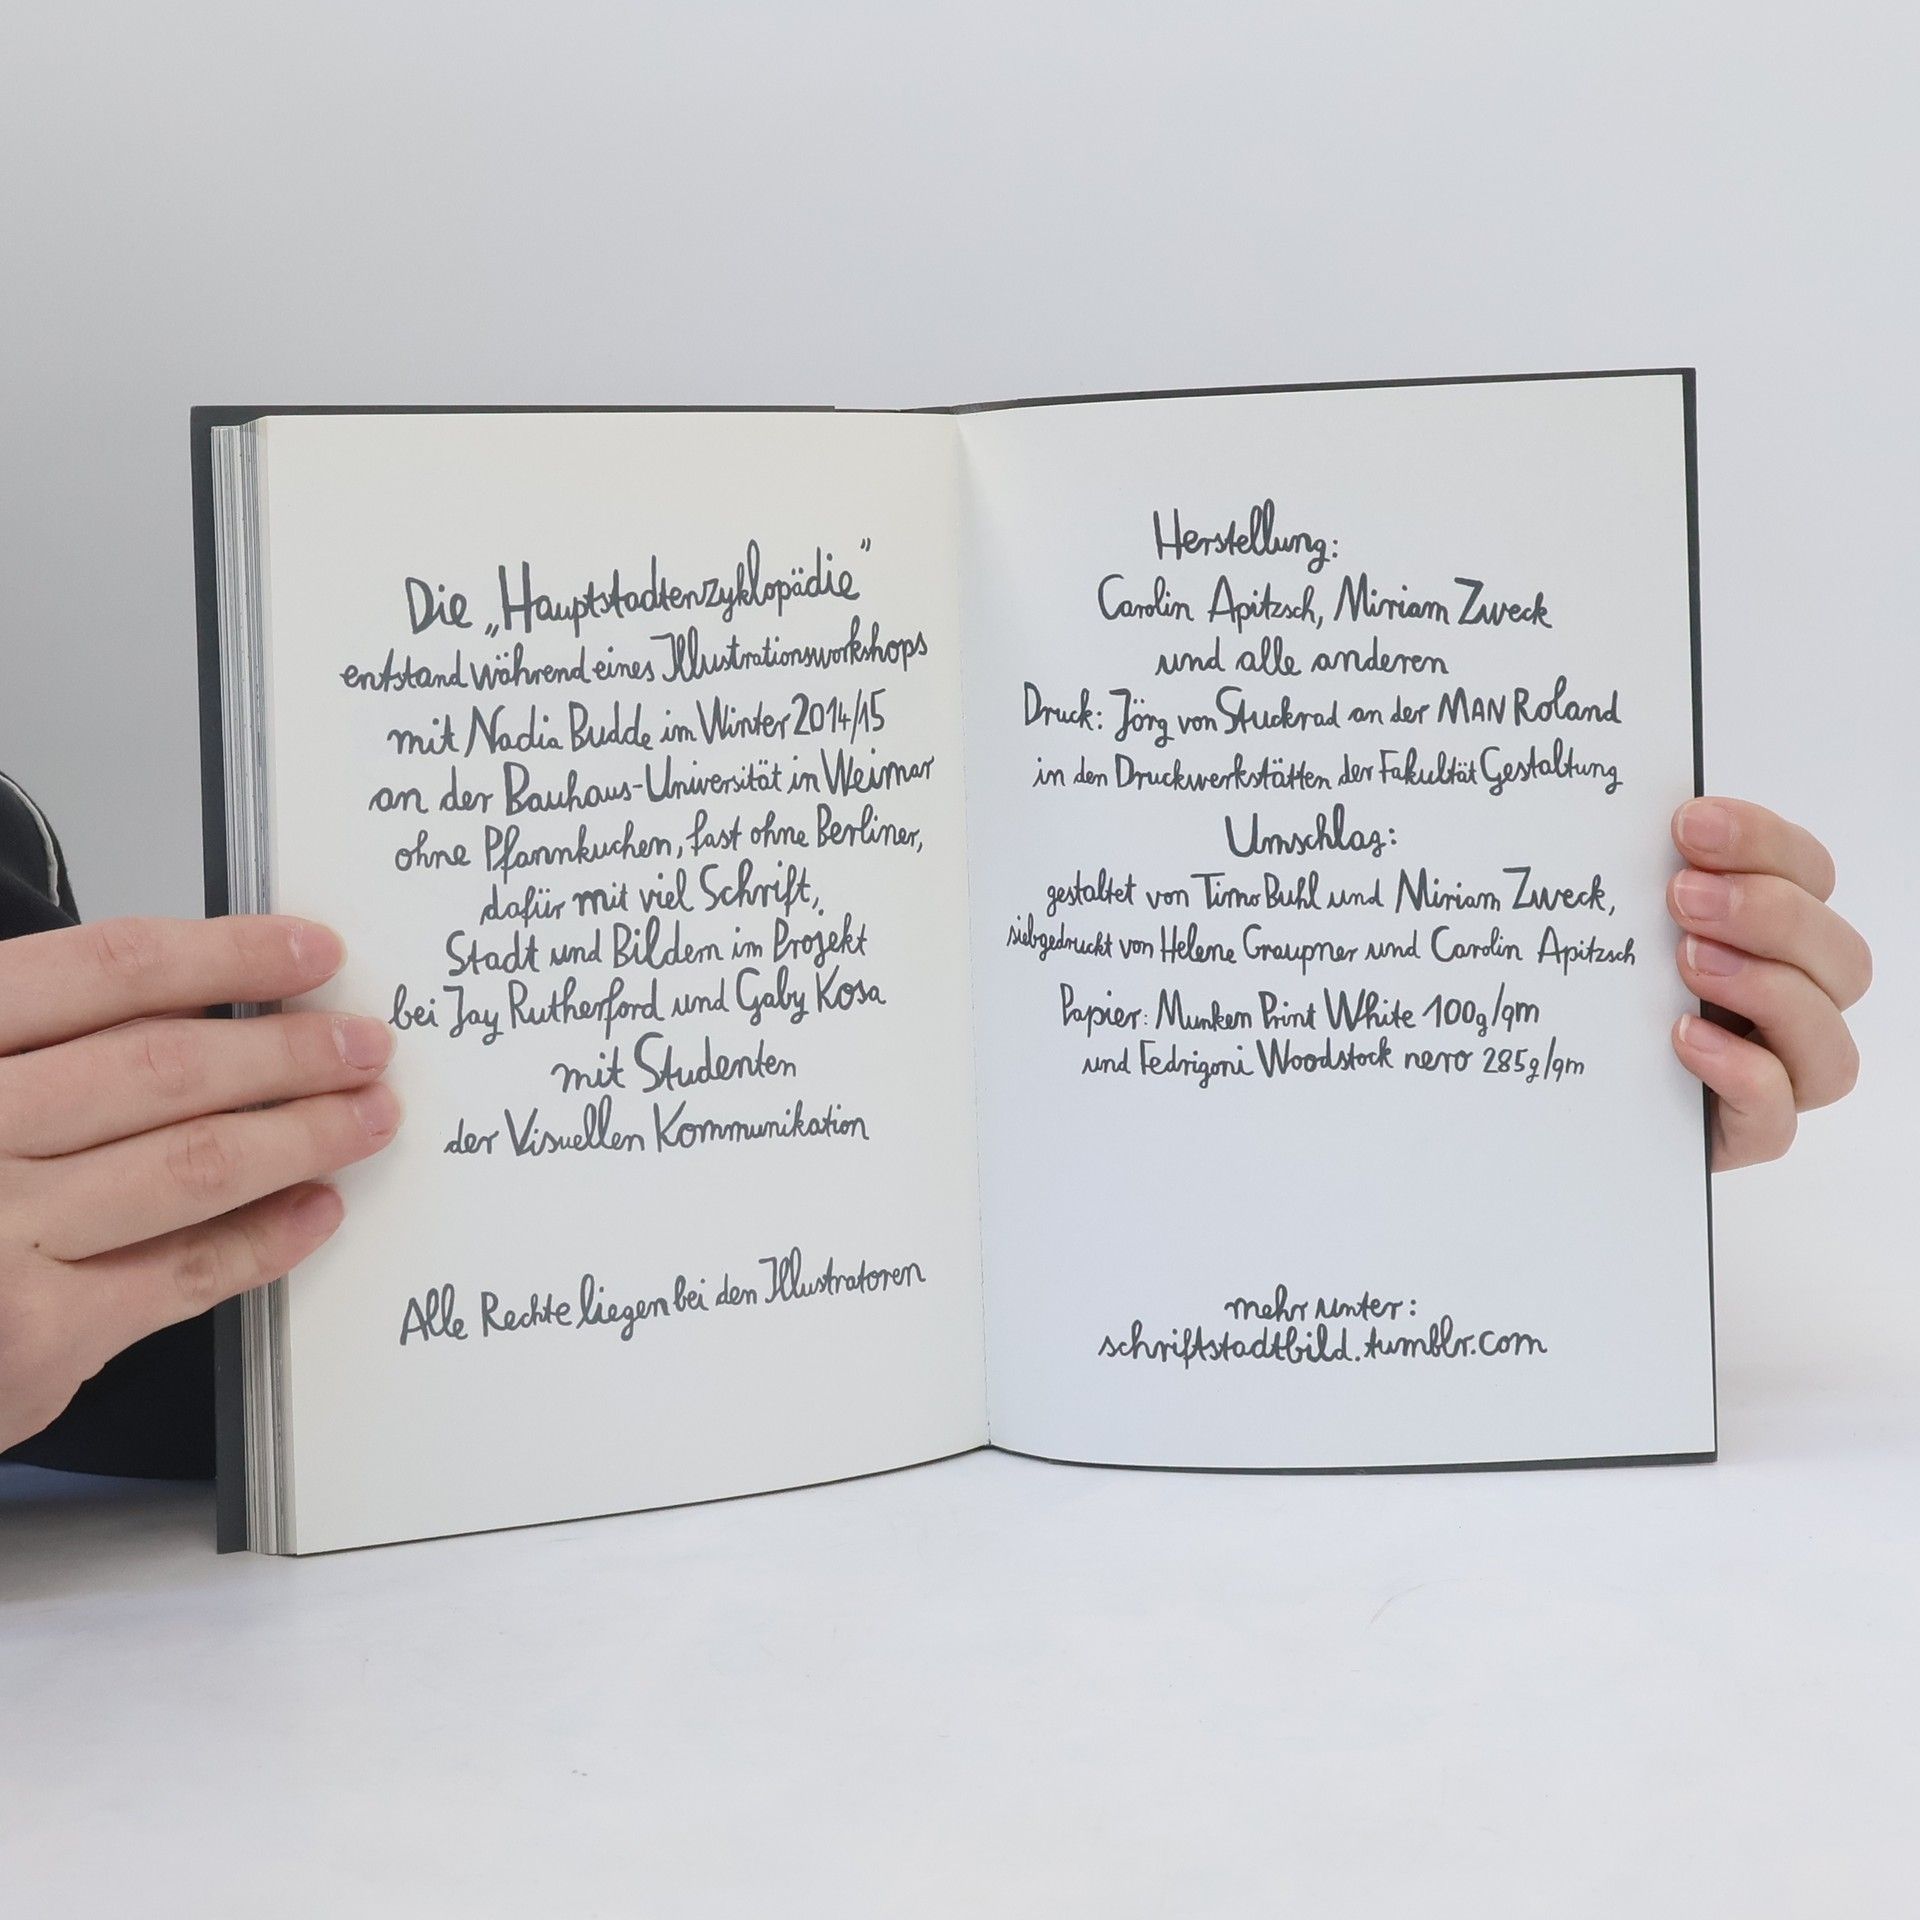 Die „Hauptstadtenzyklopädie”
entstand während eines Illustrationsworkshops
mit Nadia Budde im Winter 2014/15
an der Bauhaus-Universität in Weimar
ohne Pfannkuchen, fast ohne Berliner,
dafür mit viel Schrift,
Stadt und Bildern im Projekt
bei Jay Rutherford und Gaby Kosa
mit Studenten
der Visuellen Kommunikation
Alle Rechte liegen bei den Illustratoren
Herstellung:
Carolin Apitzsch, Miriam Zweck
und alle anderen
Druck: Jörg von Stuckrad an der MAN Roland
in den Druckwerkstätten der Fakultät Gestaltung
Umschlag:
gestaltet von Timo Buhl und Miriam Zweck,
siebgedruckt von Helene Graupner und Carolin Apitzsch
Papier: Munken Print White 100g/qm
und Fedrigoni Woodstock nero 285g/qm
mehr unter:
schriftstadtbild.tumblr.com